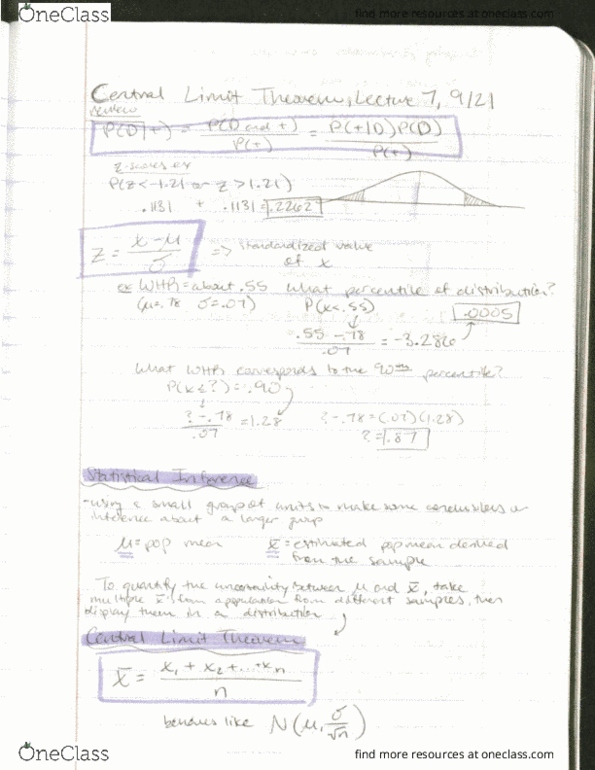 OneClass
find more resources at oneclass.com
Central Limit Theorem, Lecture 7, 9/21
review
P(D|+) = P(D and +) / P(+) = P(+|D)P(D) / P(+)
z-scores ex
P(z<-1.21 or z>1.21)
.1131 + .1131 = .2262
z = x-μ / σ => standardized value
of x
ex WHPs = about .55 what percentile of distribution?
(μ=.78 σ=.07) P(x<.55) .0005
.55-.78 / .07 = -3.286
What WHPs corresponds to the 90th percentile?
P(x≤?)=.90
?-.78 / .07 = 1.28 ?-.78=(.07)(1.28)
?=.87
Statistical Inference
-using a small group of units to make some conclusions or
inference about a larger group
μ=pop mean x̄=estimated pop mean derived
from the sample
To quantify the uncertainty between μ and x̄, take
multiple x̄'s from a population from different samples, then
display them in a distribution
Central Limit Theorem
x̄ = x₁ + x₂ + ... + xₙ / n
behaves like N(μ, σ/√n)
OneClass
find more resources at oneclass.com